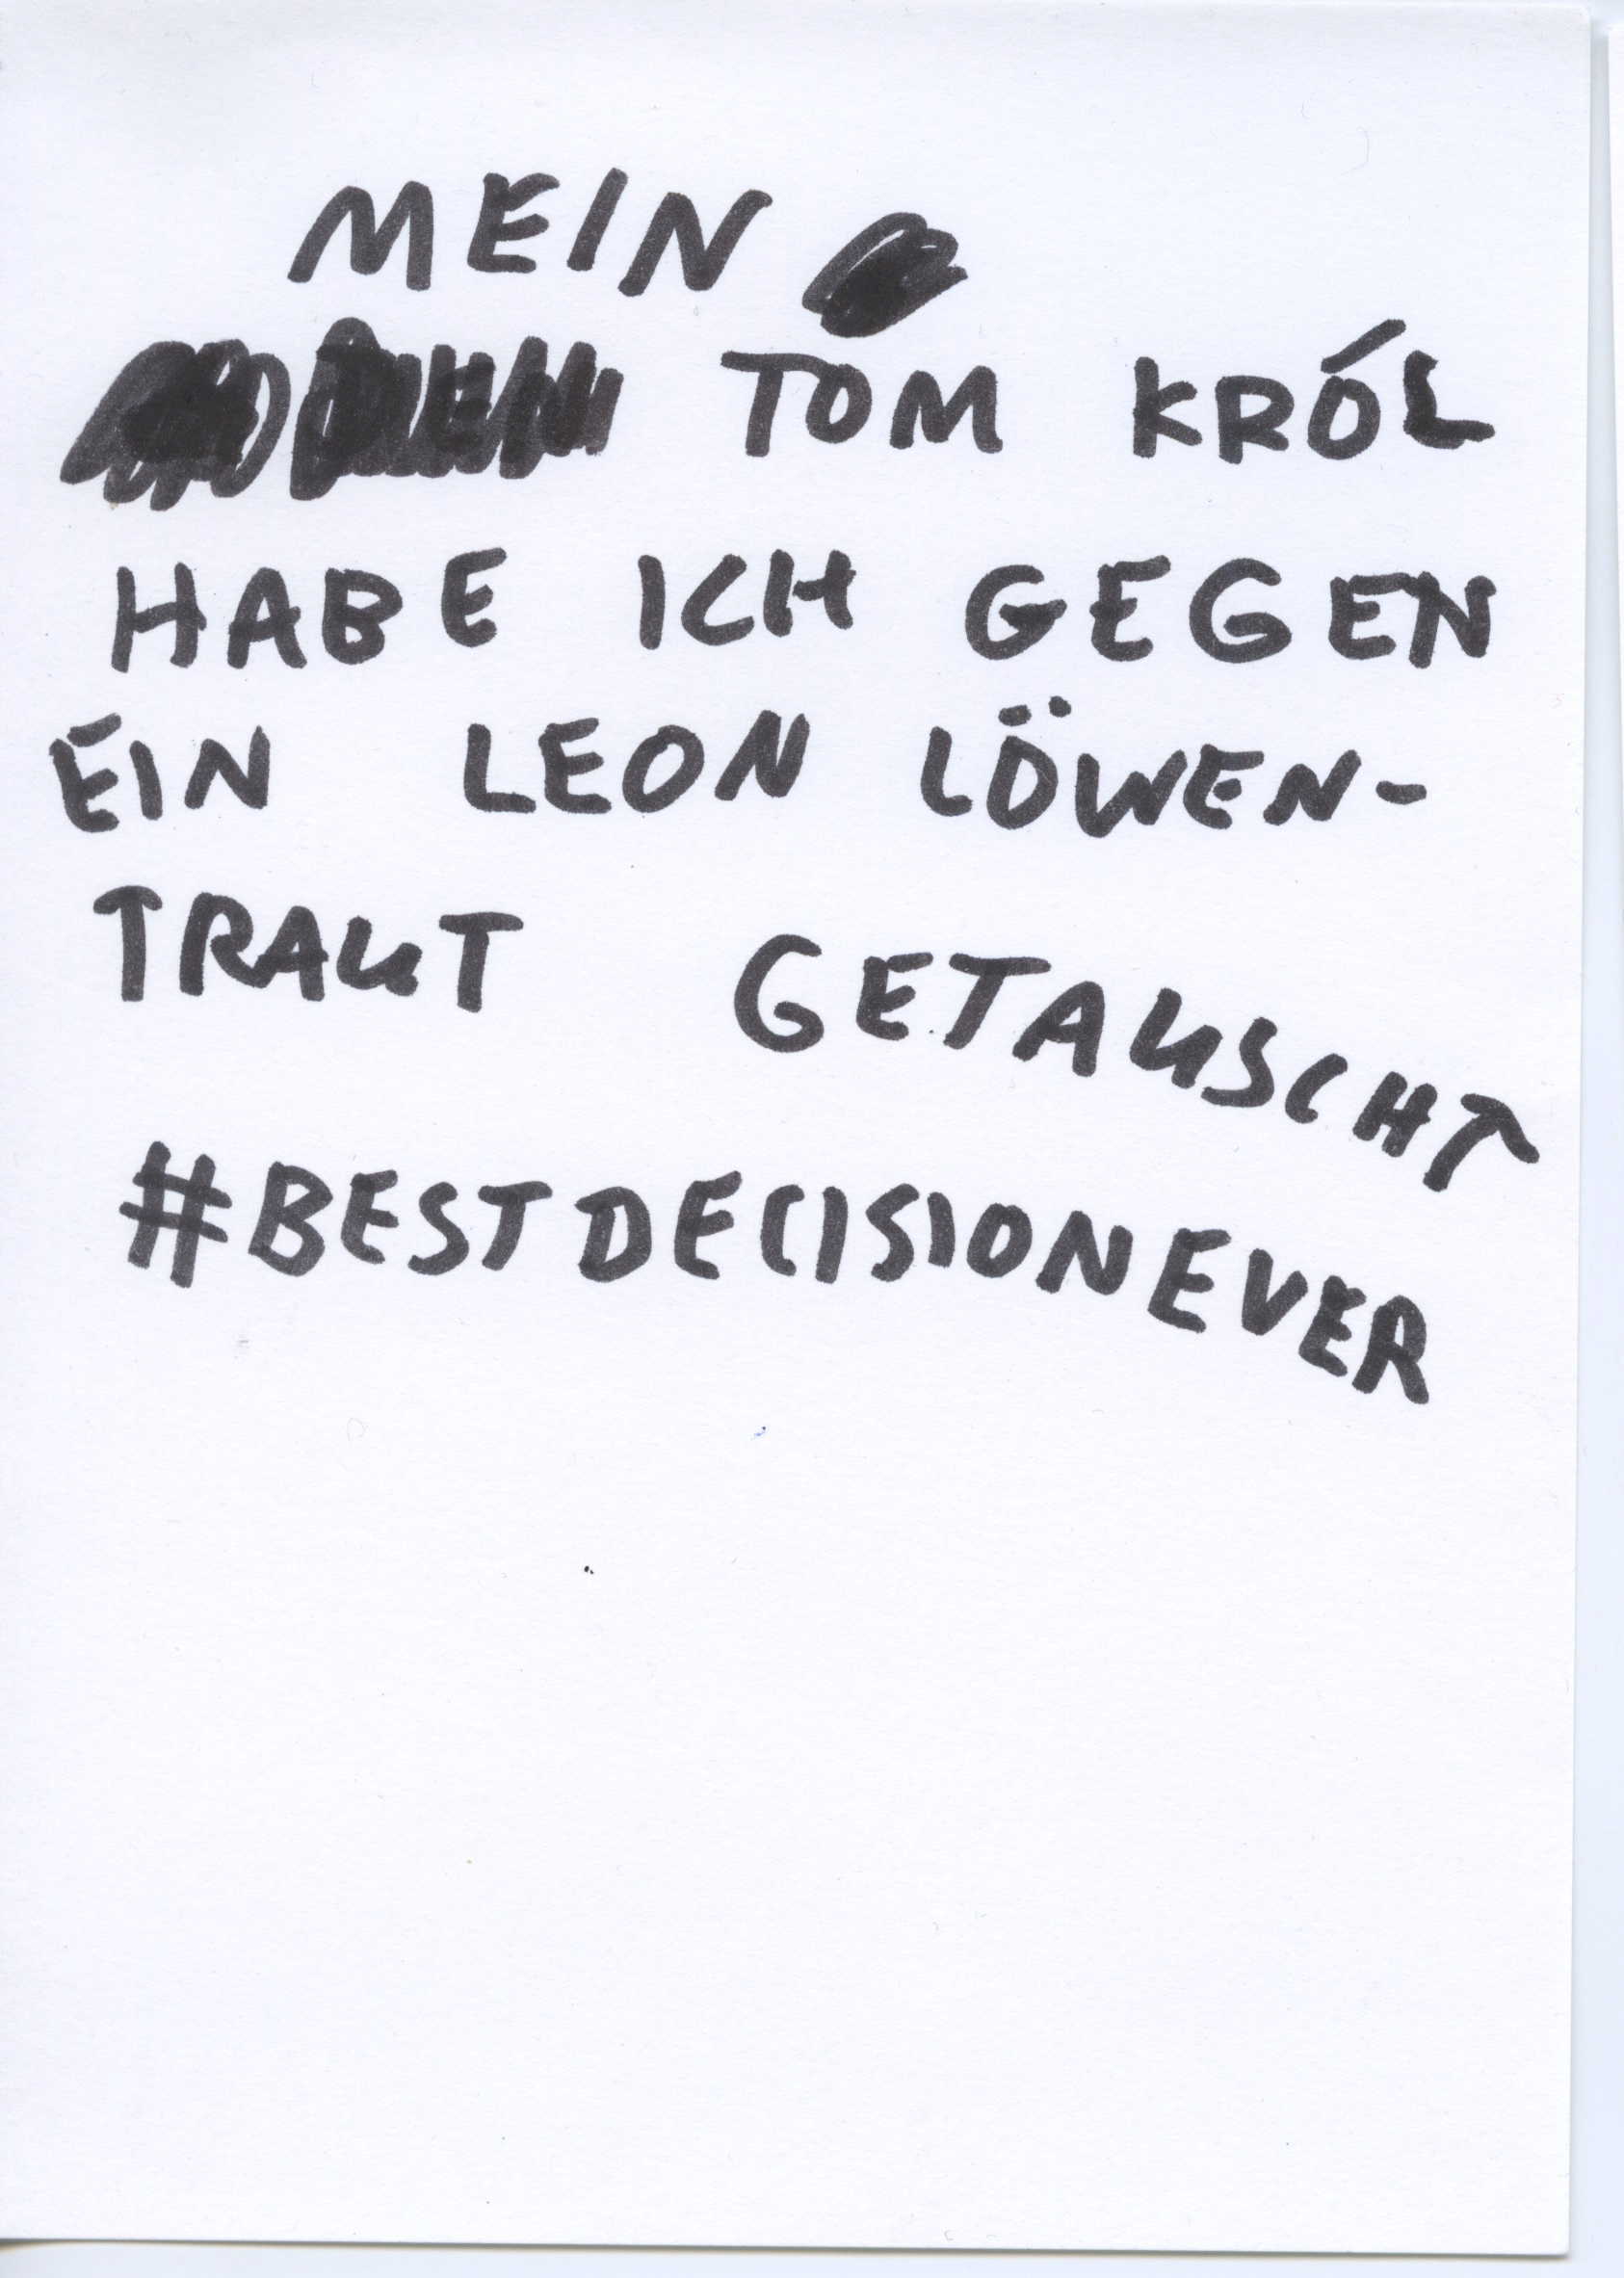 MEIN
TOM KRÓL
HABE ICH GEGEN
EIN LEON LÖWEN-
TRAUT GETAUSCHT
#BESTDECISIONEVER